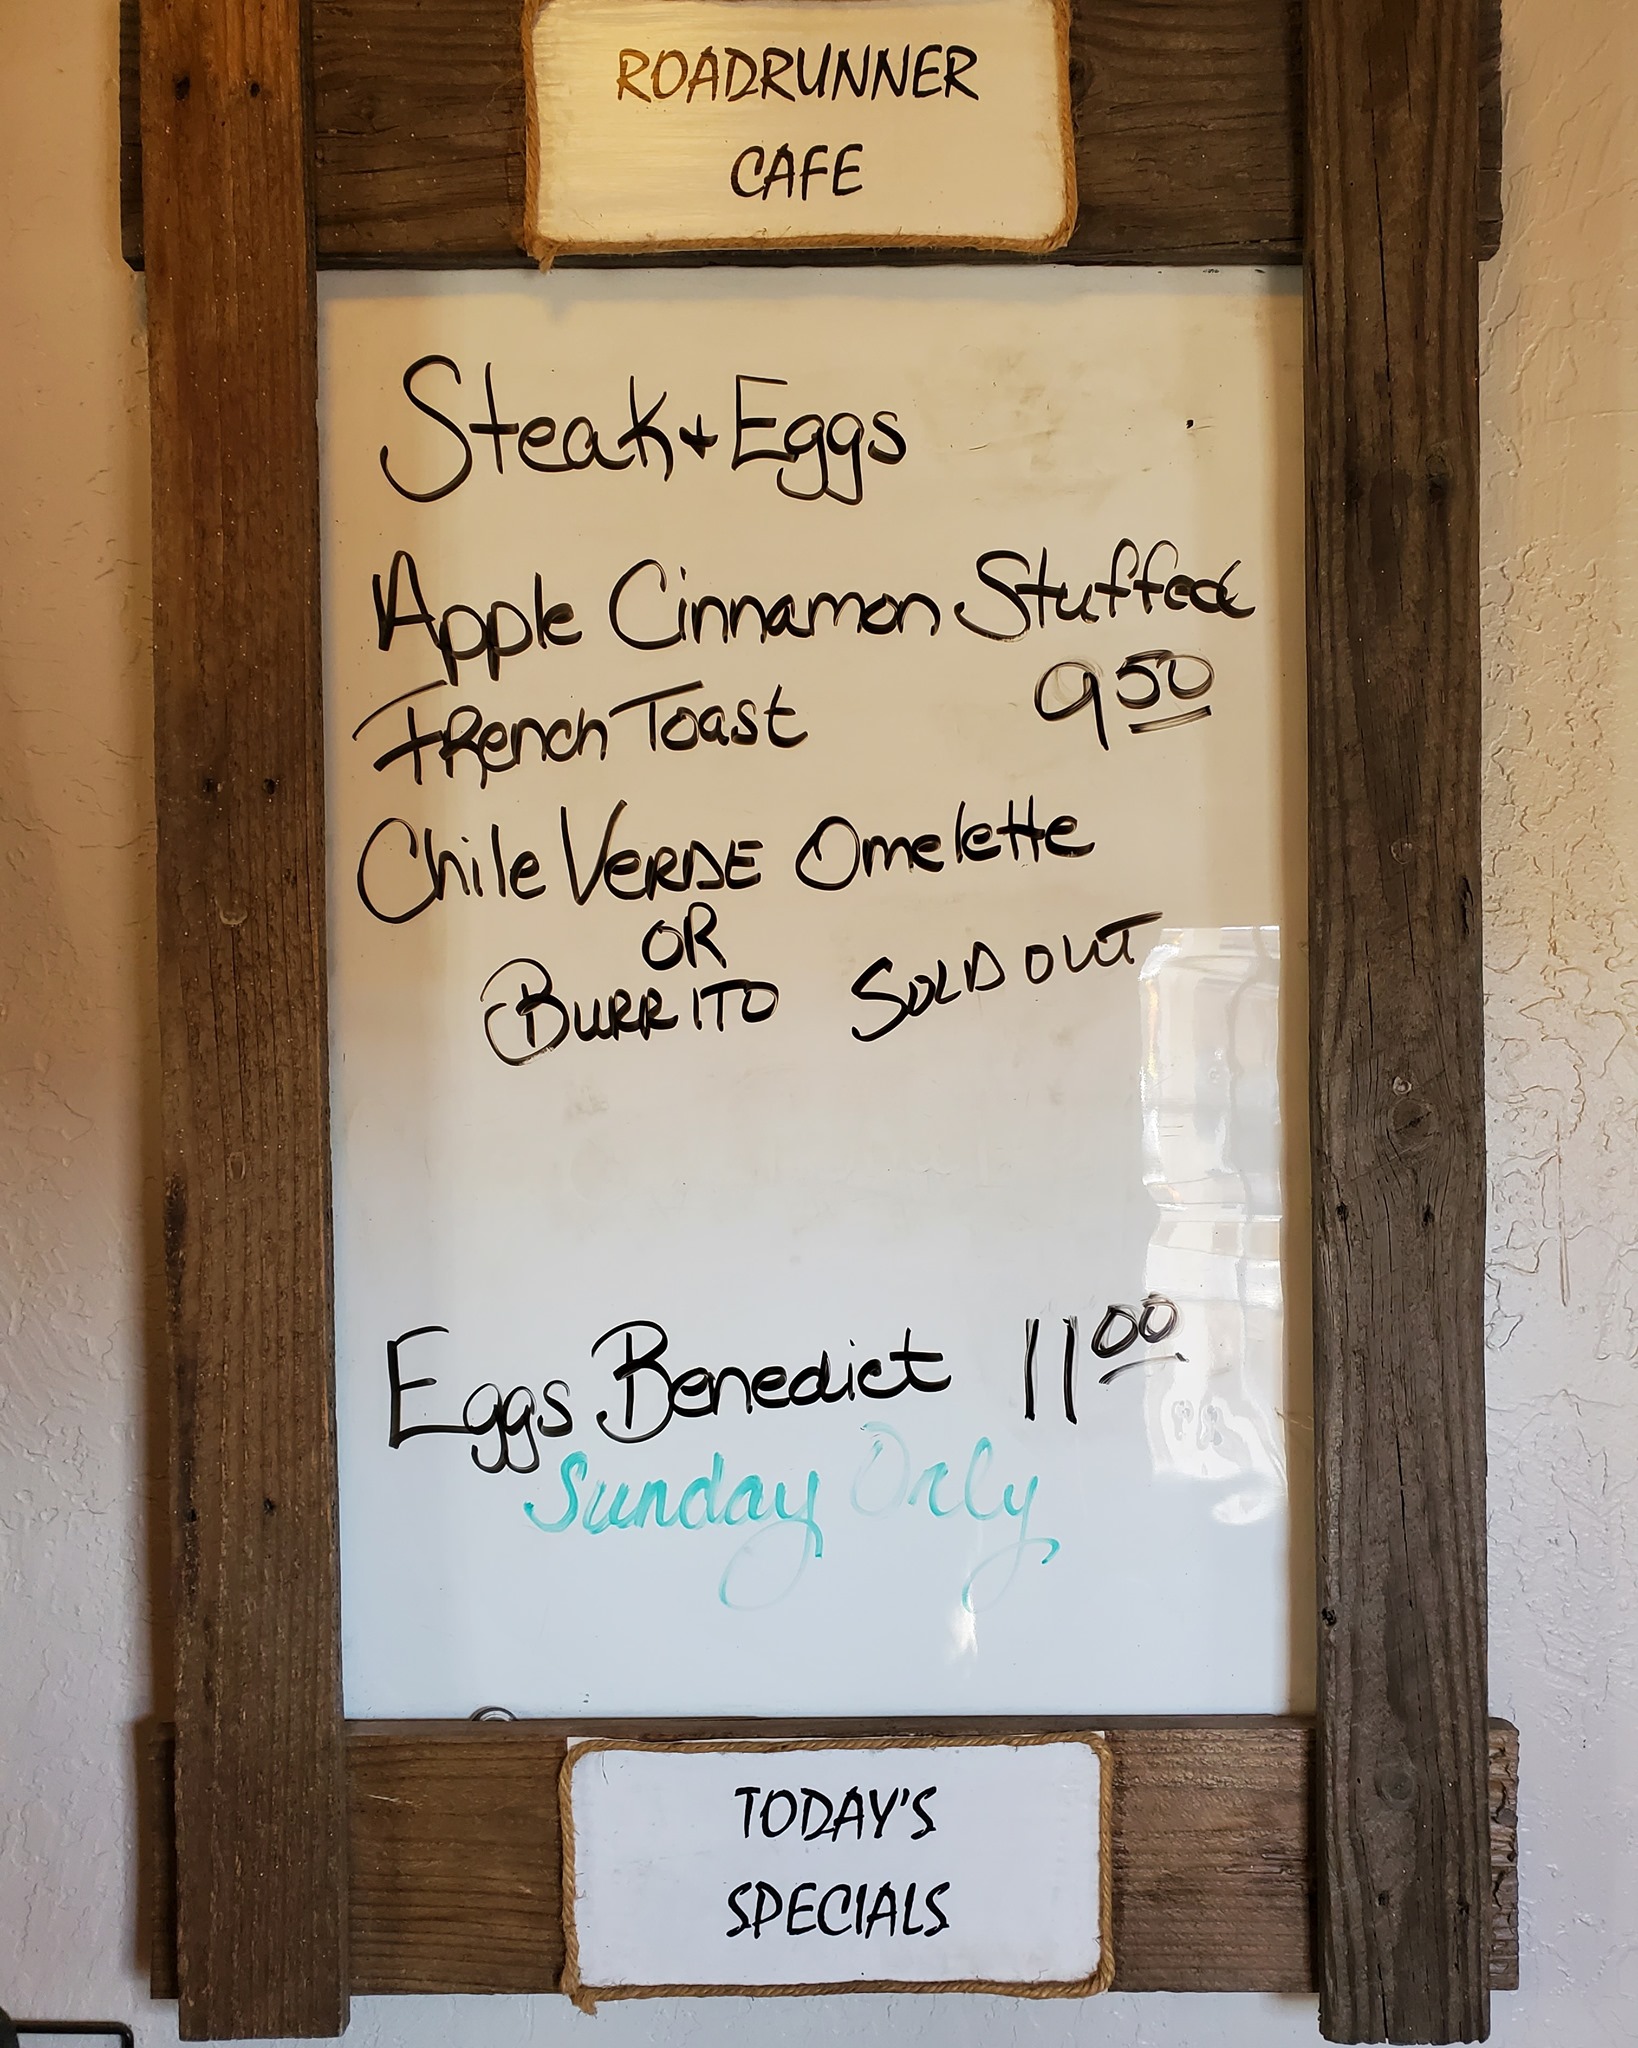 ROADRUNNER
CAFE
Steak + Eggs
Apple Cinnamon Stuffed
French Toast 9 50
Chile VERDE Omelette
OR
BURRITO SOLD OUT
Eggs Benedict 11 00
Sunday Only
TODAY'S
SPECIALS